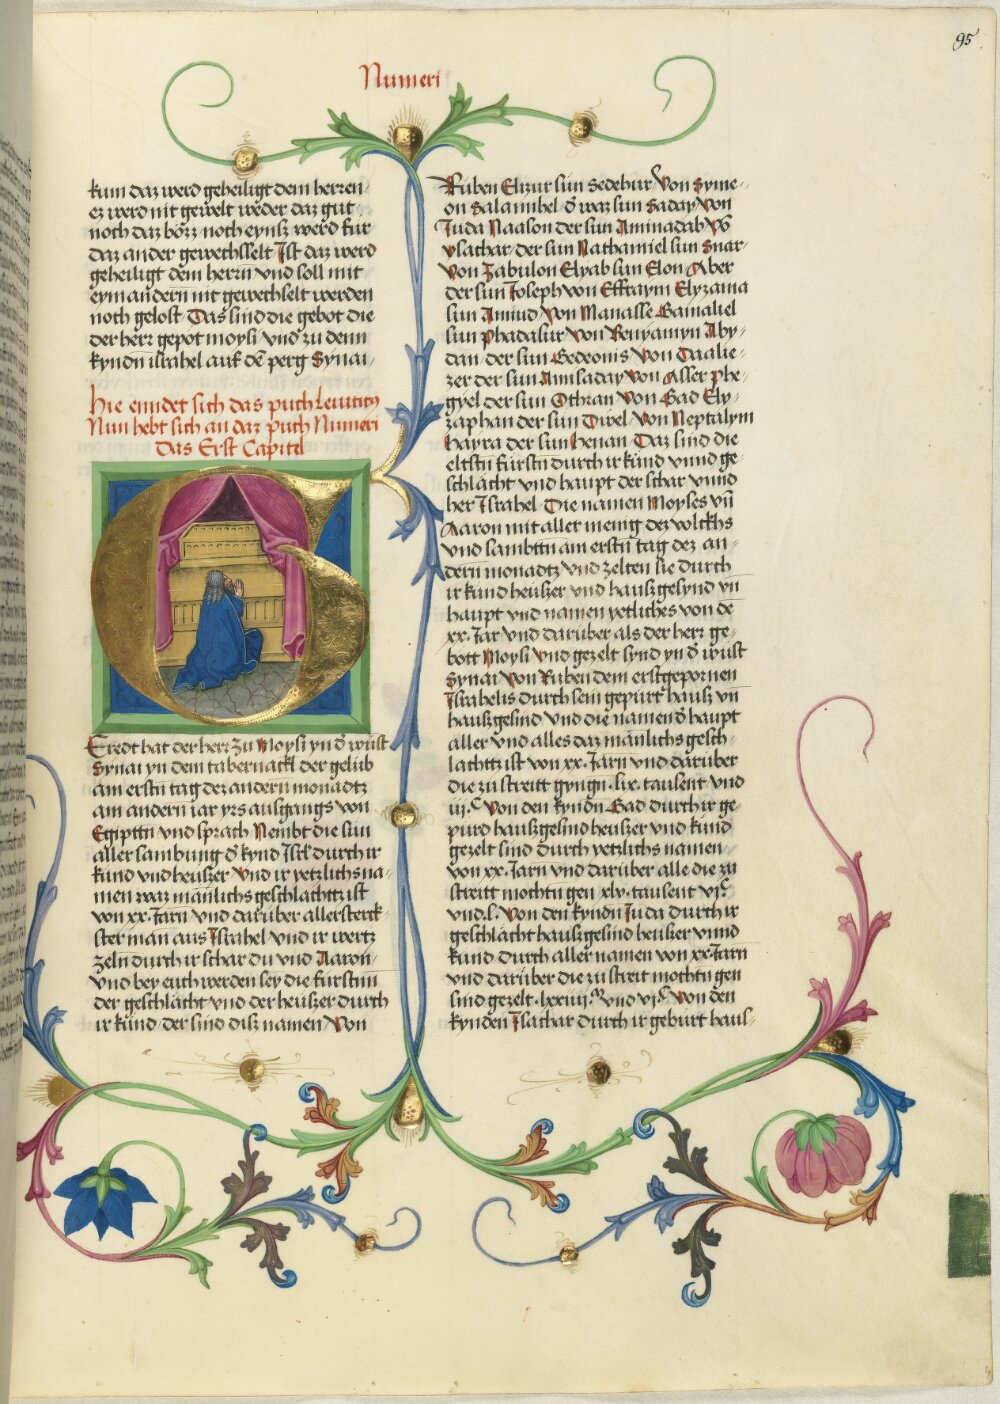 95
Numeri
kum daz werd geheiligt dem herren
ez werd nit gewelt weder daz gut
noch daz bözz noch eynsz werd für
daz ander gewechsselt Jst daz werd
geheiligt dem herrn vnd soll mit
eym andern nit gewechselt werden
noch gelost Das sind die gebot die
der herr gepot moysi vnd zu denn
kyndn israhel auf dē perg Synai
Hie enndet sich das puch Leuiticus
Nun hebt sich an daz puch Numeri
Das Erst Capitel
G
Eredt hat der herr zu Moysi yn d' wüst
Synai yn dem tabernackl der gelüb
am erstn tag dez andern monadtz
am andern iar yrs ausgangs von
Egipttn vnd sprach Nembt die sun
aller sambung d' kynd Jsrl' durch ir
kund vnd heuszer vnd ir yetzlichs na-
men waz mänlichs geschlächttz ist
von xx. Jarn vnd darüber allersterck-
ster man aus Jsrahel vnd ir wertz
zeln durch ir schar du vnd Aaron
vnd bey euch werden sey die fürstnn
der geschlächt vnd der heuszer durch
ir kund der sind disz namen Von
Ruben Elizur sun Sedebur Von Syme-
on Salamihel d' waz sun Saday Von
Juda Naason der sun Aminadab Vō
Ysachar der sun Nathaniel sun Suar
Von Zabulon Elyab sun Elon Aber
der sun Joseph von Effraym Elyzama
sun Amiud Von Manasse Gamaliel
sun Phadasur Von Benyamyn Aby-
dan der sun Gedeonis Von Daalie-
zer der sun Amisaday Von Asser Phe-
gyel der sun Othran Von Gad Ely-
zaphan der sun Duel Von Neptalym
hayra der sun henan Daz sind die
eltstn fürstn durch ir kund vnnd ge-
schlächt vnd haupt der schar vnnd
her Jsrahel Die namen Moyses vn̄
Aaron mit aller menig dez volckhs
vnd sambttn am erstn tag dez an-
dern monadtz vnd zelten sie durch
ir kund heuszer vnd hauszgesynd vn̄
haupt vnd namen yetliches von de
xx. Jar vnd darüber als der herr ge-
bott Moysi Vnd gezelt synd yn d' wüst
Synai Von Ruben dem erstgepornen
Jsrahelis durch sein gepürt hausz vn̄
hauszgesind vnd die namen d' haupt
aller vnd alles daz mänlichs gesch-
lächttz ist von xx. Jarn vnd darüber
die zu streitt gyngn. lix. tausent vnd
iii.C Von den kyndn Gad durch ir ge-
purd hauszgesind heuszer vnd kund
gezelt sind durch yetzlichs namen
von xx. Jarn vnd darüber alle die zu
streitt mochtn gen xlv. tausent vi.C
vnd. l. Von den kyndn Juda durch ir
geschlächt hauszgesind heuszer vnnd
kund durch aller namen von xx. Jarn
vnd darüber die zu streit mochtn gen
sind gezelt. lxxiiii.M vnd vi.C Von den
kynden Jsachar durch ir geburt haus-